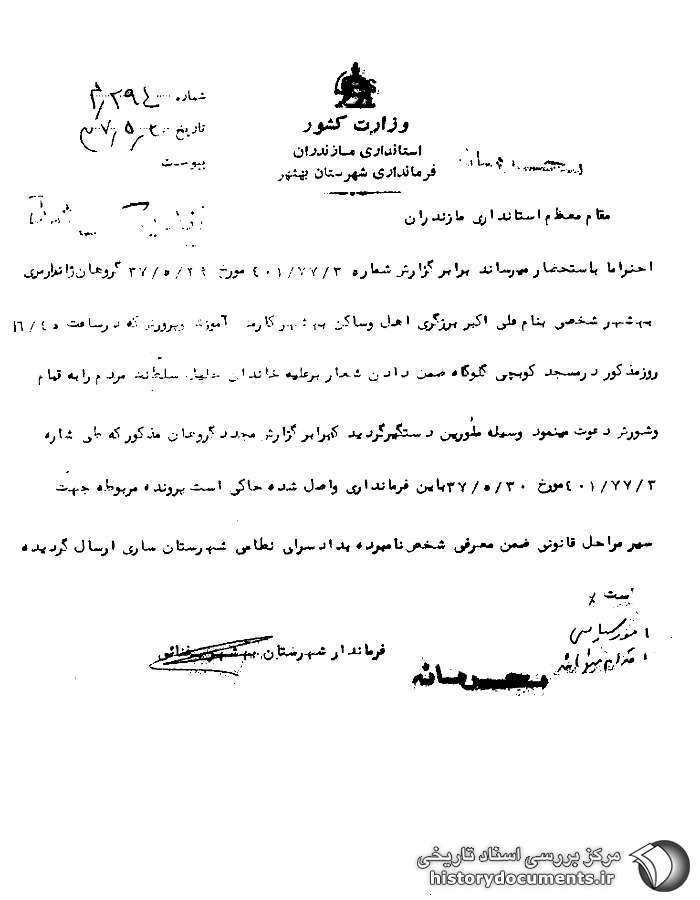 وزارت کشور
استانداری مازندران
فرمانداری شهرستان بهشهر
شماره
تاریخ
پیوست
محرمانه
مقام معظم استانداری مازندران
احتراما باستحضار میرساند برابر گزارش شماره ۴۰۱/۷۷/۳ مورخ ۳۷/۵/۲۹ گروهان ژاندارمری
بهشهر شخصی بنام علی اکبر برزگری اهل وساکن بهشهر کارمند آموزش وپرورش که درساعت ۱۶/۴۵
روزمذکور درمسجد کوبچی گلوگاه ضمن دادن شعار برعلیه خاندان جلیل سلطنت مردم رابه قیام
وشورش دعوت مینمود وسیله مامورین دستگیرگردید کهبرابر گزارش مجدد گروهان مذکورکه طی شماره
۴۰۱/۷۷/۳مورخ ۳۷/۵/۳۰باین فرمانداری واصل شده حاکی است پرونده مربوطه جهت
سیر مراحل قانونی ضمن معرفی شخص نامبرده بدادسرای نظامی شهرستان ساری ارسال گردیده
است
فرماندار شهرستان بهشهر
محرمانه
مرکز بررسی اسناد تاریخی
historydocuments.ir